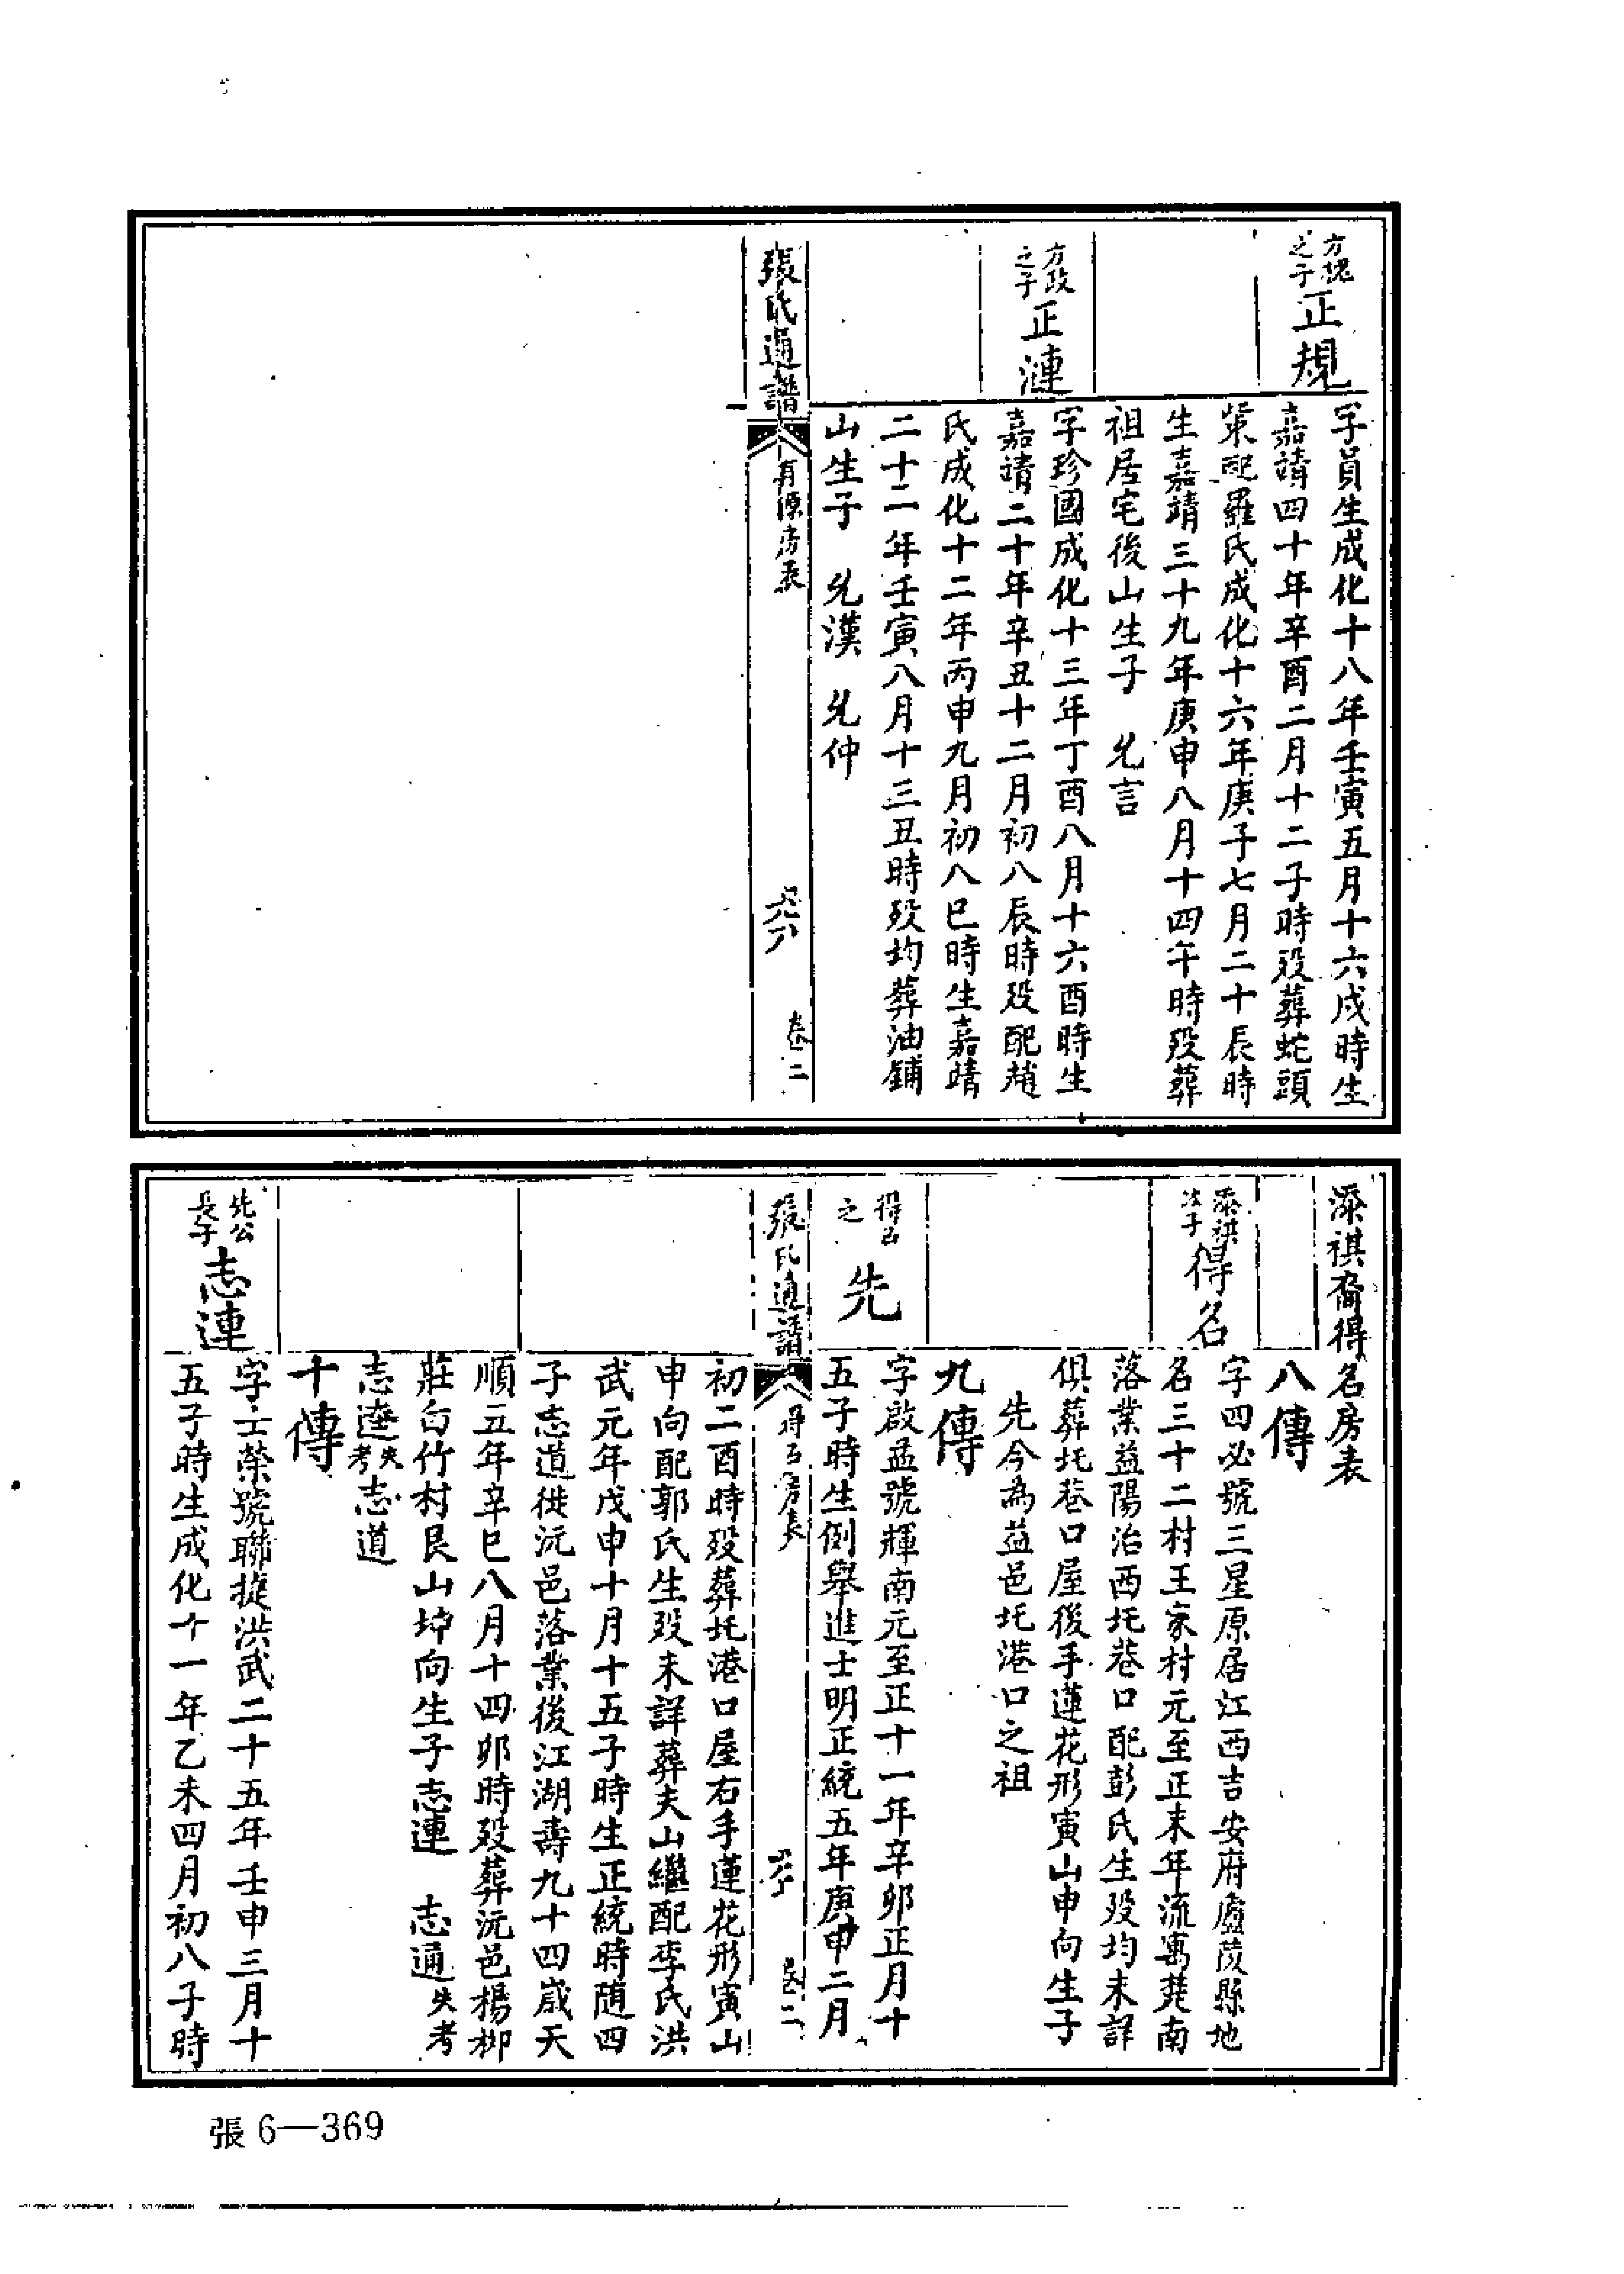 方槐之子正規
字員生成化十八年壬寅五月十六戍時生
嘉靖四十年辛酉二月十二子時殁葬蛇頭
策配羅氏成化十六年庚子七月二十辰時
生嘉靖三十九年庚申八月十四午時殁葬
祖居宅後山生子 允言
方政之子正漣
字珍國成化十三年丁酉八月十六酉時生
嘉靖二十年辛丑十二月初八辰時殁配趙
氏成化十二年丙申九月初八巳時生嘉靖
二十二年壬寅八月十三丑時殁均葬油鋪
山生子 允漢 允仲
張氏通譜 再源房表 卷二
添祺裔得名房表
八傳
添祺次子得名
字四必號三星原居江西吉安府廬陵縣地
名三十二村王家村元至正末年流寓楚南
落業益陽治西圫巷口配彭氏生殁均未詳
俱葬圫巷口屋後手蓮花形寅山申向生子
先今為益邑圫港口之祖
九傳
得名之 先
字啟孟號輝南元至正十一年辛卯正月十
五子時生例舉進士明正統五年庚申二月
張氏通譜 得名房表 卷二
初二酉時殁葬圫港口屋右手蓮花形寅山
申向配郭氏生殁未詳葬夫山繼配李氏洪
武元年戊申十月十五子時生正統時随四
子志道徙沅邑落業後江湖壽九十四歲天
順五年辛巳八月十四卯時殁葬沅邑楊柳
莊白竹村艮山坤向生子志連 志通失考
志達失考志道
十傳
先公長子志連
字士榮號聯捷洪武二十五年壬申三月十
五子時生成化十一年乙未四月初八子時
張 6—369